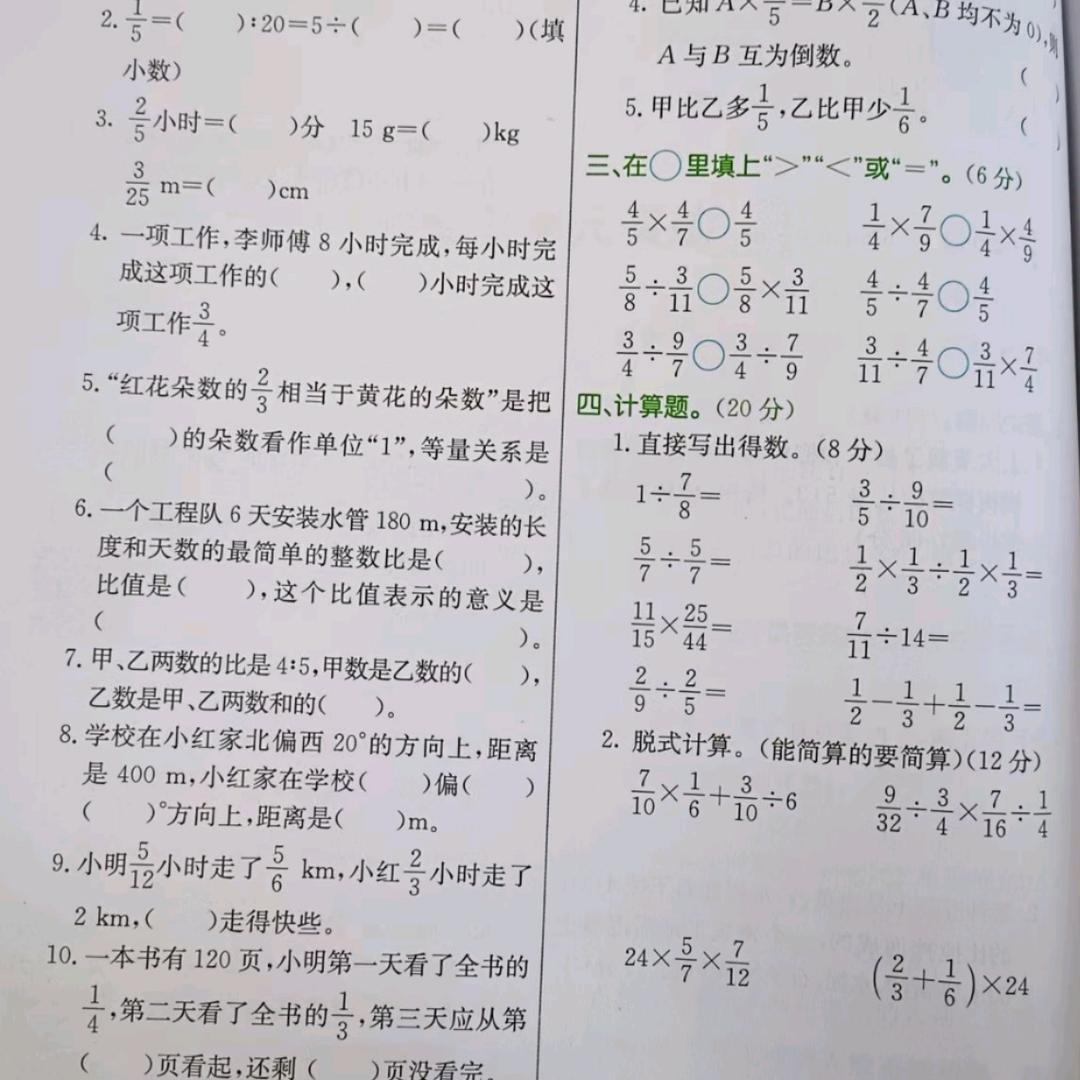 2. 1/5=(  ):20=5÷(  )=(  )(填
小数)
3. 2/5小时=(  )分 15 g=(  )kg
3/25 m=(  )cm
4. 一项工作,李师傅8小时完成,每小时完
成这项工作的(  ),(  )小时完成这
项工作3/4。
5.“红花朵数的2/3相当于黄花的朵数”是把
(  )的朵数看作单位“1”,等量关系是
(  )。
6. 一个工程队6天安装水管180 m,安装的长
度和天数的最简单的整数比是(  ),
比值是(  ),这个比值表示的意义是
(  )。
7. 甲、乙两数的比是4:5,甲数是乙数的(  ),
乙数是甲、乙两数和的(  )。
8. 学校在小红家北偏西20°的方向上,距离
是400 m,小红家在学校(  )偏(  )
(  )°方向上,距离是(  )m。
9. 小明5/12小时走了5/6 km,小红2/3小时走了
2 km,(  )走得快些。
10. 一本书有120页,小明第一天看了全书的
1/4,第二天看了全书的1/3,第三天应从第
(  )页看起,还剩(  )页没看完。
4. 已知A×/5=B×/2(A、B均不为0),则
A与B互为倒数。 (  )
5. 甲比乙多1/5,乙比甲少1/6。 (  )
三、在○里填上“>”“<”或“=”。(6分)
4/5×4/7○4/5 1/4×7/9○1/4×4/9
5/8÷3/11○5/8×3/11 4/5÷4/7○4/5
3/4÷9/7○3/4÷7/9 3/11÷4/7○3/11×7/4
四、计算题。(20分)
1. 直接写出得数。(8分)
1÷7/8= 3/5÷9/10=
5/7÷5/7= 1/2×1/3÷1/2×1/3=
11/15×25/44= 7/11÷14=
2/9÷2/5= 1/2-1/3+1/2-1/3=
2. 脱式计算。(能简算的要简算)(12分)
7/10×1/6+3/10÷6 9/32÷3/4×7/16÷1/4
24×5/7×7/12 (2/3+1/6)×24